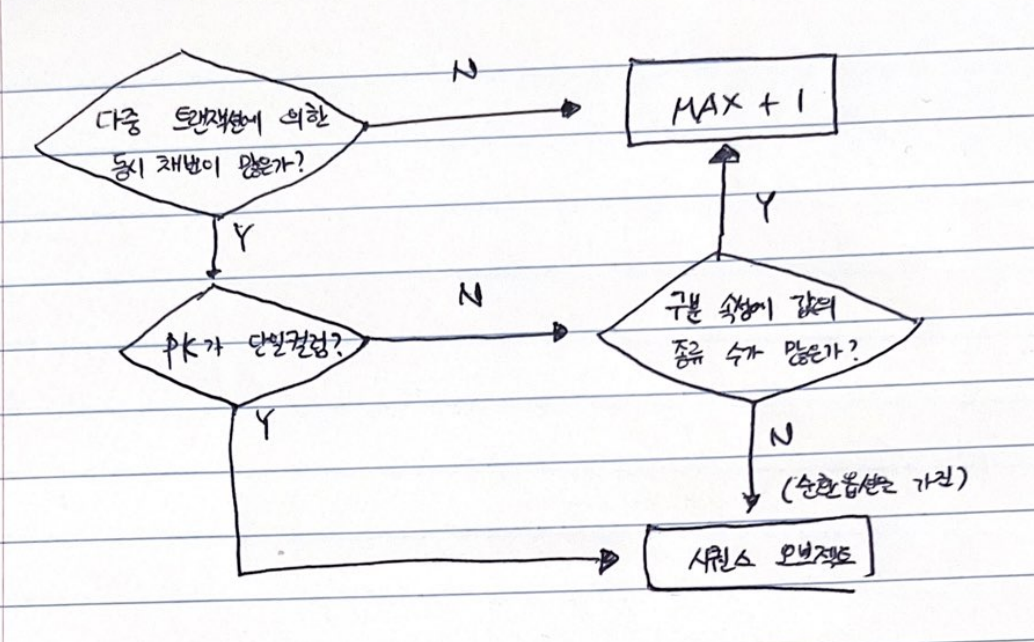 다중 트랜잭션에 의한
동시 채번이 많은가?
N
MAX + 1
Y
Y
PK가 단일컬럼?
N
구분 속성에 값의
종류 수가 많은가?
Y
N
(순환옵션을 가진)
시퀀스 오브젝트